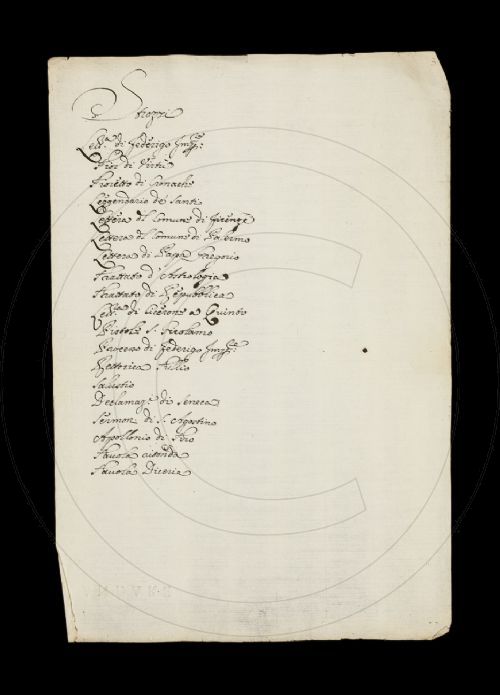 Strozzi
Lett.ª di Federigo Imp.re
Fior di Virtù
Fioretto di Cronache
Leggendario de' Santi
Lettera del Comune di Firenze
Lettera del Comune di Palermo
Lettera di Papa Gregorio
Trattato d'Astrologia
Trattato di Repubblica
Lett.ª di Cicerone a Quinto
Pistole S. Girolamo
di Federigo Imp.re
Rettorica Tullio
Salustio
Declamaz.e di Seneca
Sermon. di S. Agostino
Apollonio di Tiro
Tavola
Tavola Diceria